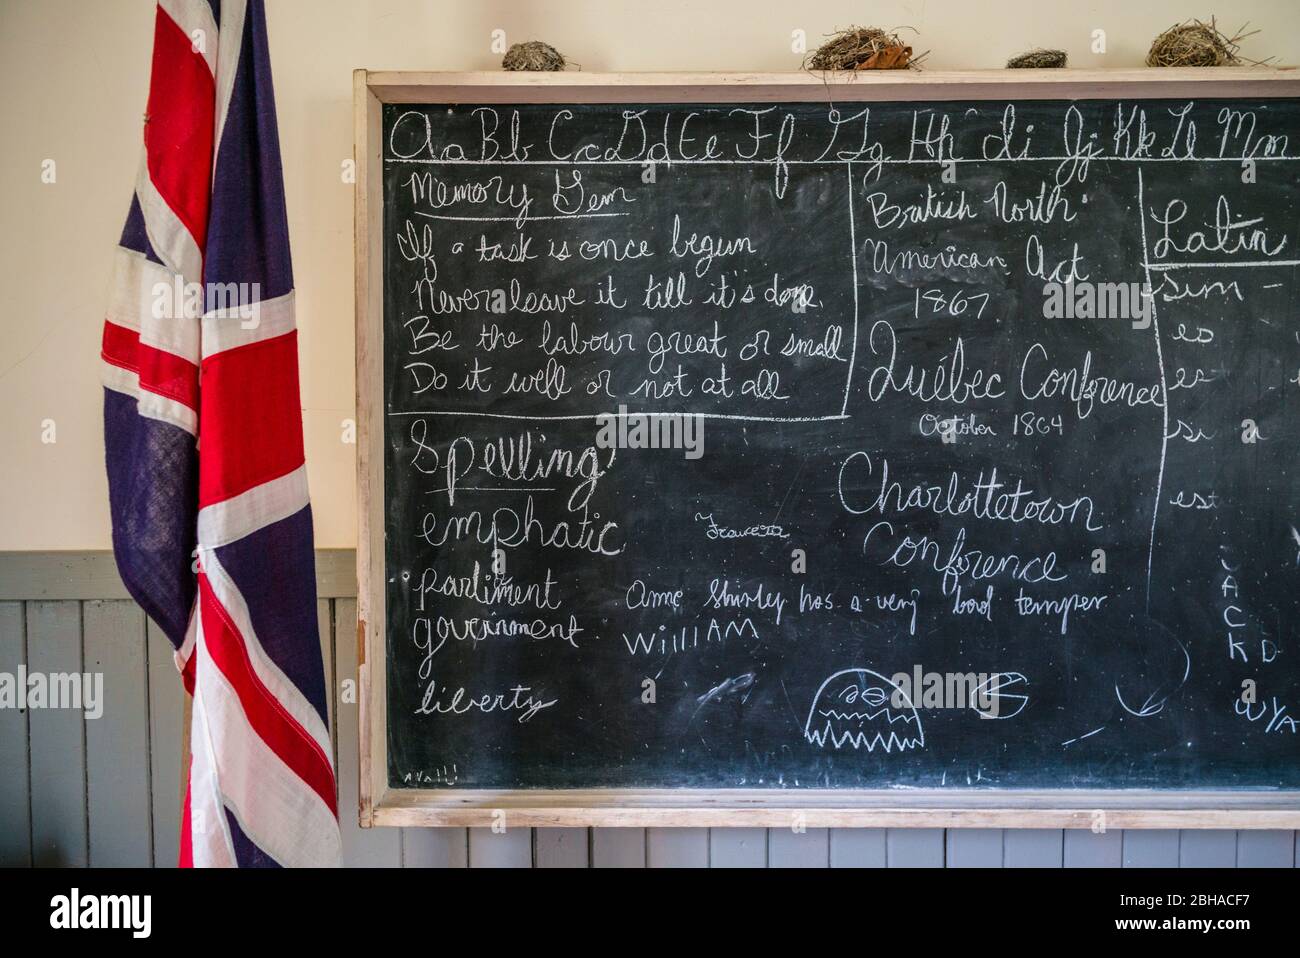 Aa Bb Cc Dd Ee Ff Gg Hh Ii Jj Kk Ll Mm
Memory Gem
If a task is once begun
Never leave it till it's done.
Be the labour great or small
Do it well or not at all
Spelling
emphatic
parliment
government
liberty
British North
American Act
1867
Québec Conference
October 1864
Charlottetown
Conference
Anne Shirley has a very bad temper
WillIAM
Latin
sum -
es
est
JACK D
alamy
Image ID: 2BHACF7
www.alamy.com